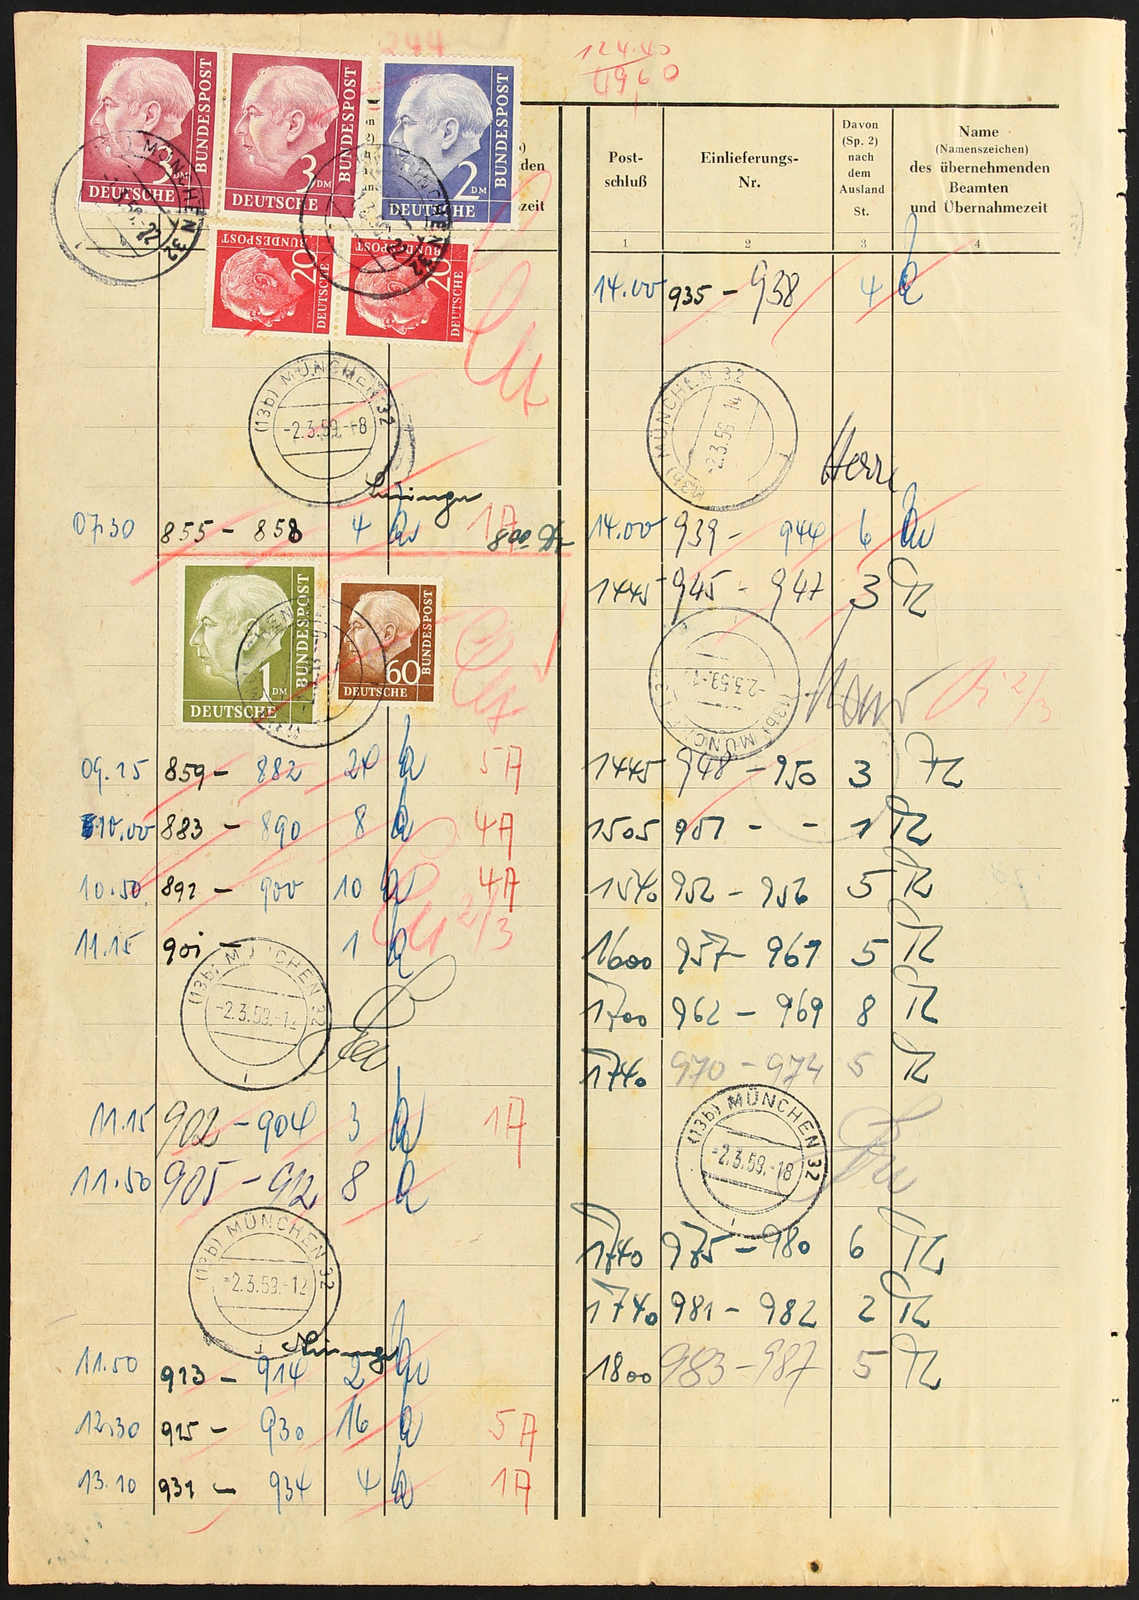 244
124.40
4960
BUNDESPOST
3 DM
DEUTSCHE
BUNDESPOST
3 DM
DEUTSCHE
BUNDESPOST
2 DM
DEUTSCHE
BUNDESPOST
20
DEUTSCHE
BUNDESPOST
20
DEUTSCHE
MÜNCHEN 32
MÜNCHEN 32
den
zeit
(13b) MÜNCHEN 32
-2.3.59.-8
07.30 855 - 858 4 1A
BUNDESPOST
1 DM
DEUTSCHE
BUNDESPOST
60
DEUTSCHE
09.15 859 - 882 24 5A
10.00 883 - 890 8 4A
10.50 891 - 900 10 4A
2/3
11.15 901 - 1
(13b) MÜNCHEN 32
-2.3.59.-12
11.15 902 - 904 3 1A
11.50 905 - 912 8
(13b) MÜNCHEN 32
-2.3.59.-12
11.50 913 - 914 2
12.30 915 - 930 16 5A
13.10 931 - 934 4 1A
Post-
schluß
Einlieferungs-
Nr.
Davon
(Sp. 2)
nach
dem
Ausland
St.
Name
(Namenszeichen)
des übernehmenden
Beamten
und Übernahmezeit
1 2 3 4
14.00 935 - 938 4
(13b) MÜNCHEN 32
-2.3.59.-14
14.00 939 - 944 6
1445 945 - 947 3
(13b) MÜNCHEN 32
-2.3.59.-1
2/3
1445 948 - 950 3
1505 951 - - 1
1540 952 - 956 5
1600 957 - 961 5
1700 962 - 969 8
1740 970 - 974 5
(13b) MÜNCHEN 32
-2.3.59.-18
1740 975 - 980 6
1740 981 - 982 2
1800 983 - 987 5